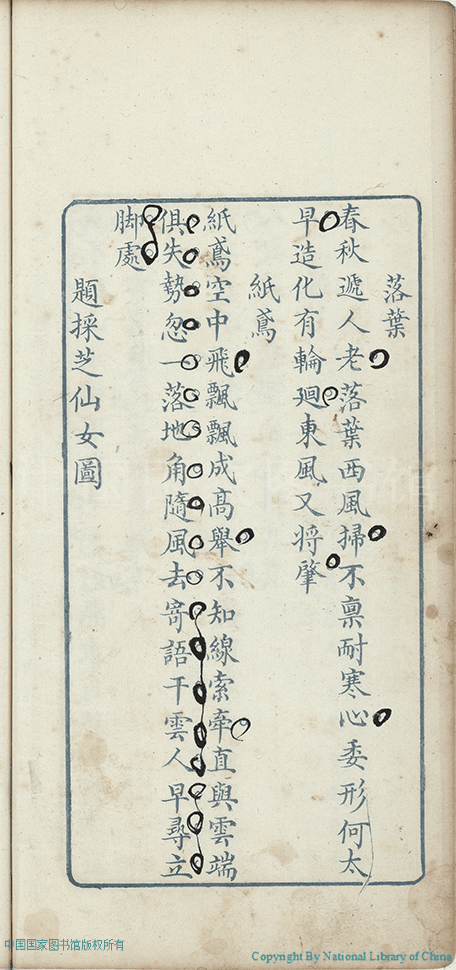 落葉
春秋遞人老落葉西風掃不禀耐寒心委形何太
早造化有輪廻東風又将肇
紙鳶
紙鳶空中飛飄飄成高舉不知線索牽直與雲端
俱失勢忽一落地角隨風去寄語干雲人早尋立
脚處
題採芝仙女圖
中国国家图书馆版权所有
Copyright By National Library of China